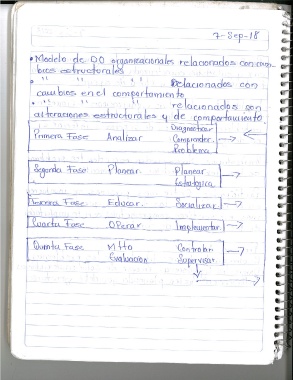 7-Sep-18
• Modelo de DO organizacionales relacionados con cam-
bios estructurales
• " " " " Relacionados con
cambios en el comportamiento
• " " " relacionados con
alteraciones estructurales y de comportamiento.
Primera Fase Analizar Diagnosticar
Comprender
Problema
Segunda Fase Planear Planear
Estratégica
Tercera Fase Educar. Socializar
Cuarta Fase Operar Implementar
Quinta Fase Mtto Controlar
Evaluación Supervisar